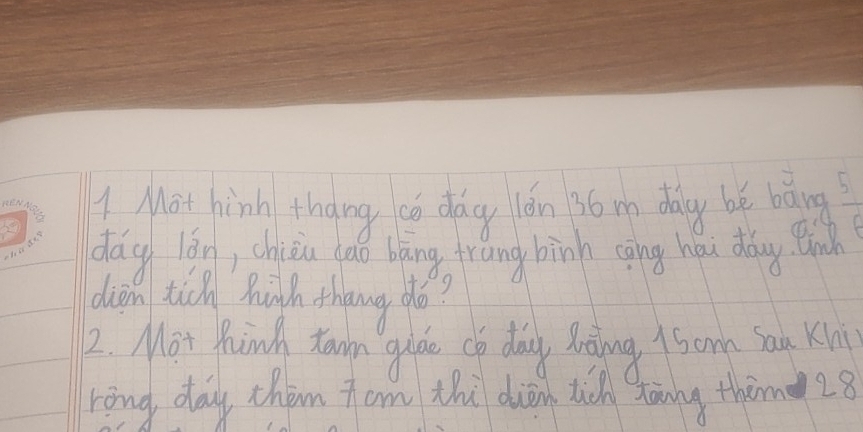 1 Một hình thang có đáy lớn 36 m đáy bé bằng 5/6
đáy lớn, chiều cao bằng trung bình cộng hai đáy. Tính
diện tích hình thang đó?
2. Một hình tam giác có đáy bằng 15cm sau khi
rộng đáy thêm 7cm thì diện tích tăng thêm 28